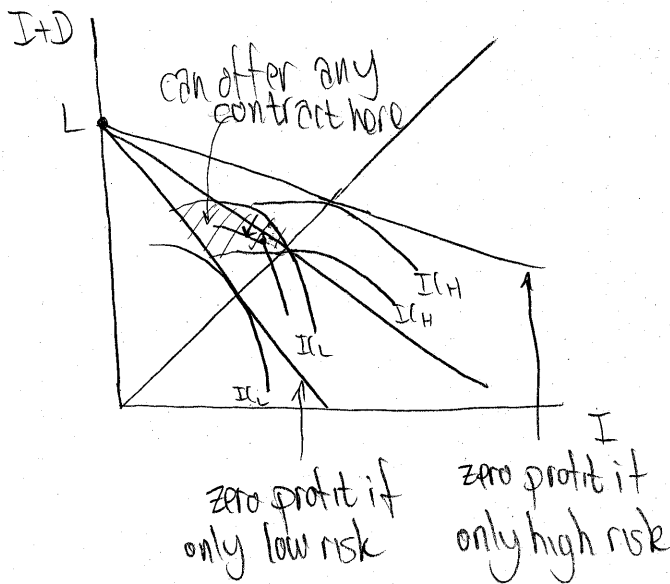 I+D
can offer any
contract here
L
IC_H
IC_H
IC_L
IC_L
I
zero profit if
only low risk
zero profit if
only high risk